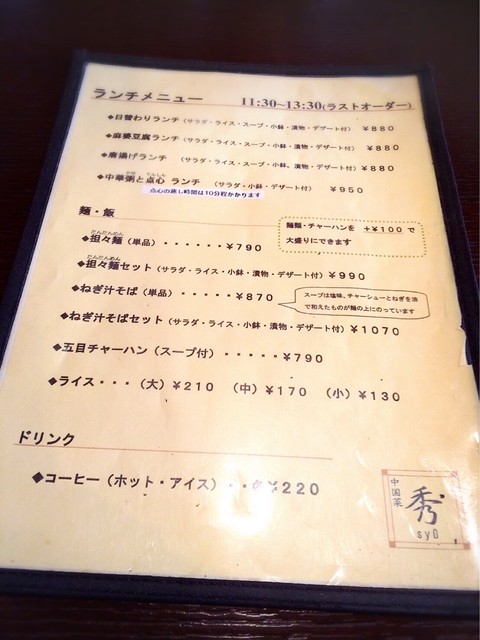 ランチメニュー　11:30~13:30(ラストオーダー)
◆日替わりランチ（サラダ・ライス・スープ・小鉢・漬物・デザート付）￥880
◆麻婆豆腐ランチ（サラダ・ライス・スープ・小鉢・漬物・デザート付）￥880
◆唐揚げランチ　（サラダ・ライス・スープ・小鉢、漬物・デザート付）￥880
◆中華粥と点心 ランチ　（サラダ・小鉢・デザート付）　￥950
点心の蒸し時間は10分程かかります
麺・飯
麺類・チャーハンを　+￥100 で
大盛りにできます
たんたんめん
◆担々麺（単品）・・・・・・￥790
たんたんめん
◆担々麺セット（サラダ・ライス・小鉢・漬物・デザート付）￥990
◆ねぎ汁そば（単品）・・・・・￥870
スープは塩味、チャーシューとねぎを油
で和えたものが麺の上にのっています
◆ねぎ汁そばセット（サラダ・ライス・小鉢・漬物・デザート付）￥1070
◆五目チャーハン（スープ付）・・・・・￥790
◆ライス・・・（大）￥210　（中）￥170　（小）￥130
ドリンク
◆コーヒー（ホット・アイス）・・・￥220
中国菜
秀
syu